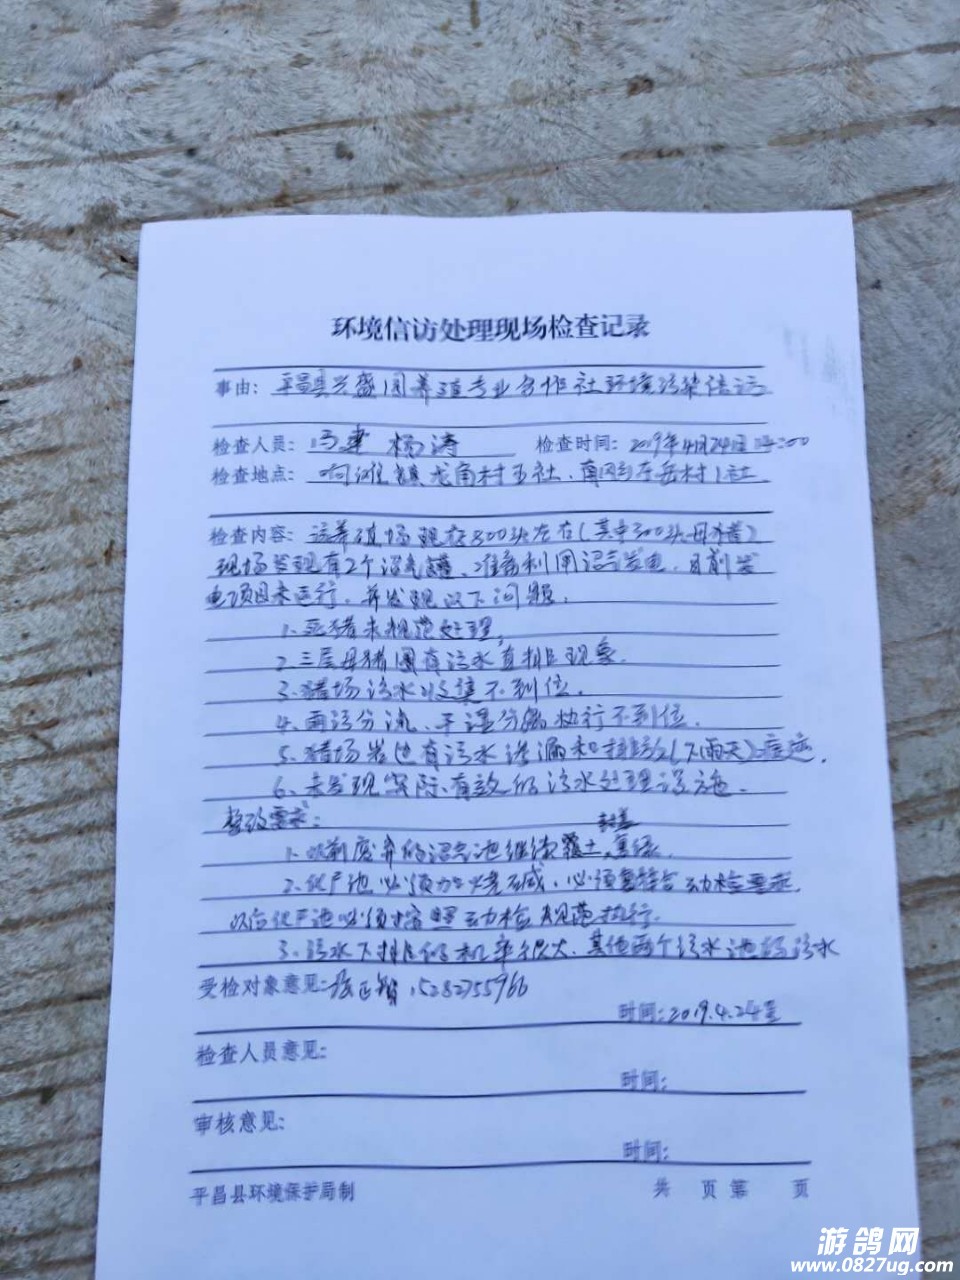 环境信访处理现场检查记录
事由：平昌县兴盛园养殖专业合作社环境污染信访
检查人员：冯建 杨涛 检查时间：2019年4月24日
检查地点：响滩镇龙角村五社、岳村1社
检查内容：该养殖场现存800头左右(其中300头母猪)
现场发现有2个沼气罐、准备利用沼气发电,目前发
电项目未运行,并发现以下问题。
1.死猪未规范处理,
2.三层母猪圈有污水直排现象.
3.猪场污水收集不到位.
4.雨污分流、干湿分离执行不到位.
5.猪场岩边有污水渗漏和排放(下雨天)痕迹.
6.未发现实际有效的污水处理设施.
整改要求:
1.以前废弃的沼气池继续覆土,复绿.
2.化尸池必须加烧碱,必须符合动检要求,
以后化尸池必须按照动检规范执行.
3.污水下排的机率很大,其他两个污水池的污水
受检对象意见: 15282755966
时间:2019.4.24
检查人员意见:
时间:
审核意见:
时间:
平昌县环境保护局制 共 页 第 页
游鸽网
www.0827ug.com